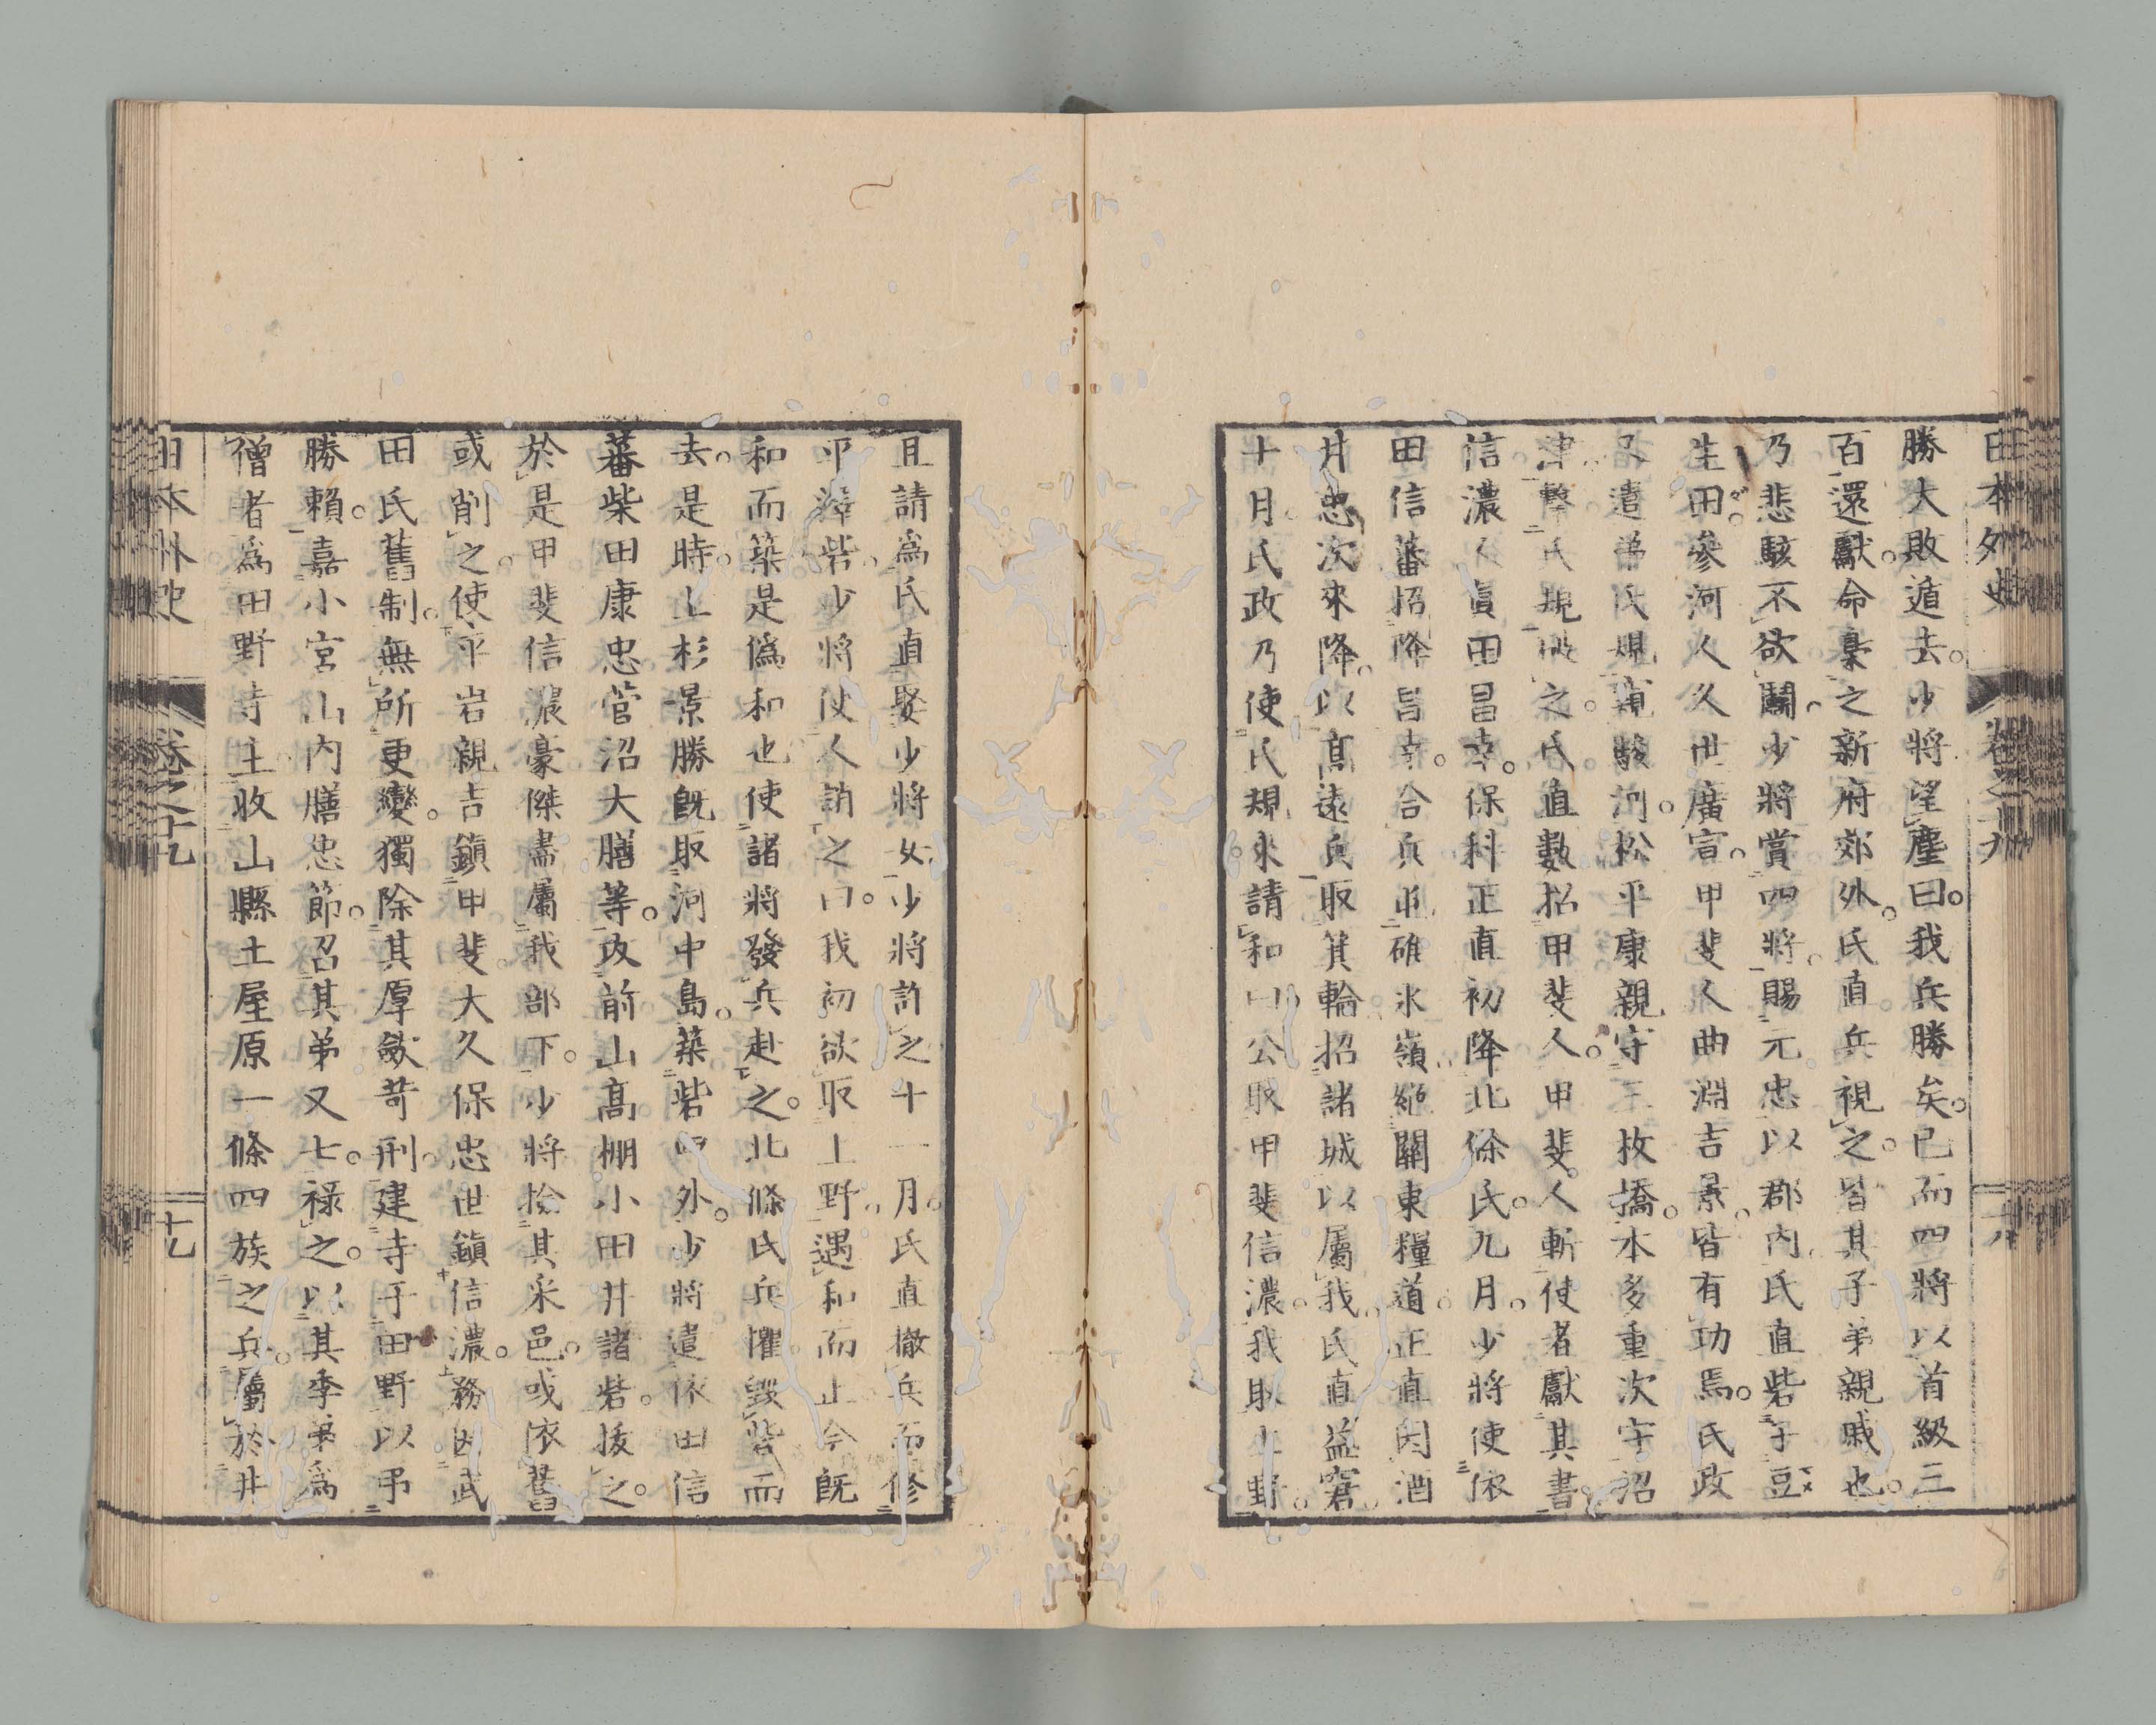 日本外史 卷之十九 十八
勝大敗遁去。少將望塵曰。我兵勝矣。已而四將以首級三
百還獻。命梟之新府郊外。氏直兵視之。皆其子弟親戚也。
乃悲駭不欲鬪。少將賞四將。賜元忠以郡內。氏直砦于豆
生田。參河人久世廣宣。甲斐人曲淵吉景。皆有功焉。氏政
又遣弟氏規窺駿河。松平康親守三枚橋。本多重次守沼
津。擊氏規破之。氏直數招甲斐人。甲斐人斬使者獻其書。
信濃人眞田昌幸。保科正直初降北條氏。九月。少將使依
田信蕃招降昌幸。合兵軍碓氷嶺。絕關東糧道。正直因酒
井忠次來降。以高遠兵取箕輪。招諸城以屬我。氏直益窘。
十月。氏政乃使氏規來請和曰。公取甲斐信濃。我取上野。
且請爲氏直娶少將女。少將許之。十一月。氏直撤兵而修
平澤砦。少將使人誚之曰。我初欲取上野。遇和而止。今旣
和而築。是僞和也。使諸將發兵赴之。北條氏兵懼。毀砦而
去。是時。上杉景勝旣取河中島。築砦四外。少將遣依田信
蕃柴田康忠菅沼大膳等。攻前山高棚小田井諸砦。拔之。
於是甲斐信濃豪傑盡屬我部下。少將撿其采邑。或依舊
或削之。使平岩親吉鎭甲斐。大久保忠世鎭信濃。務因武
田氏舊制。無所更變。獨除其厚斂苛刑。建寺于田野以弔
勝賴。嘉小宮山內膳忠節。召其弟又七。祿之。以其季弟爲
僧者爲田野寺主。收山縣土屋原一條四族之兵。屬於井
日本外史 卷之十九 十九